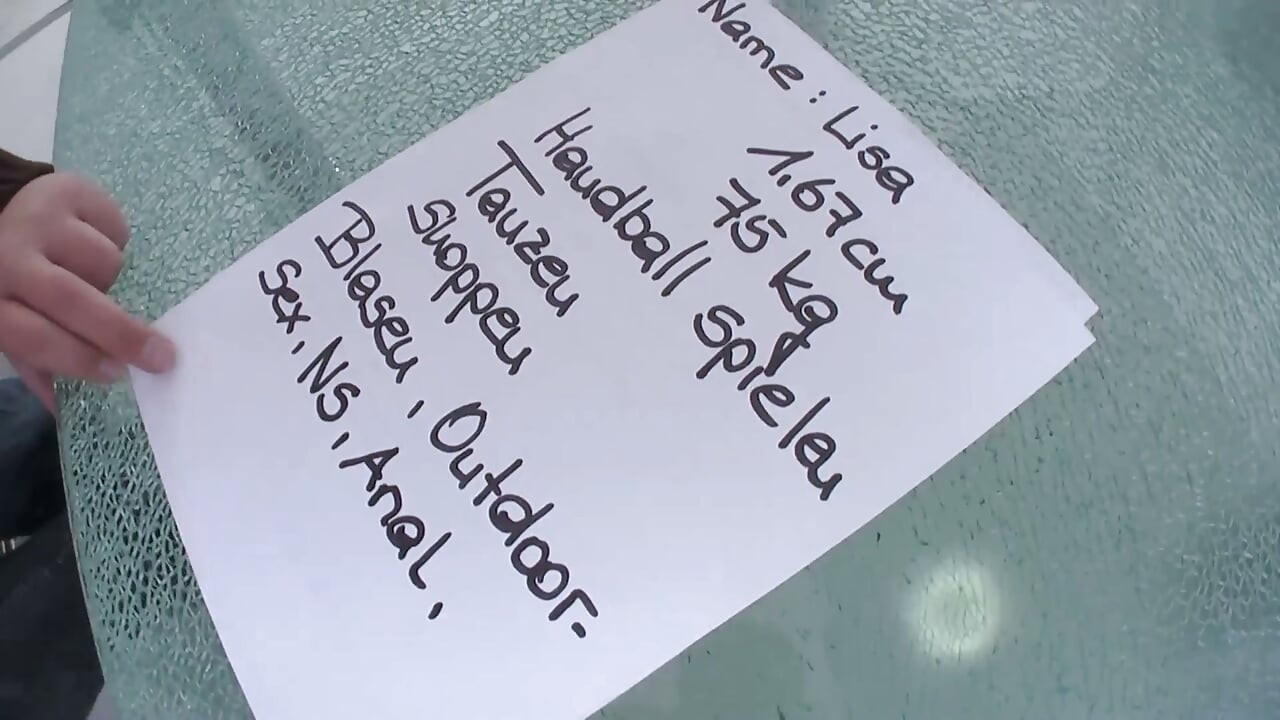 Name: Lisa
1.67cm
75 kg
Handball spielen
Tanzen
Shoppen
Blasen, Outdoor-
sex, Ns, Anal,